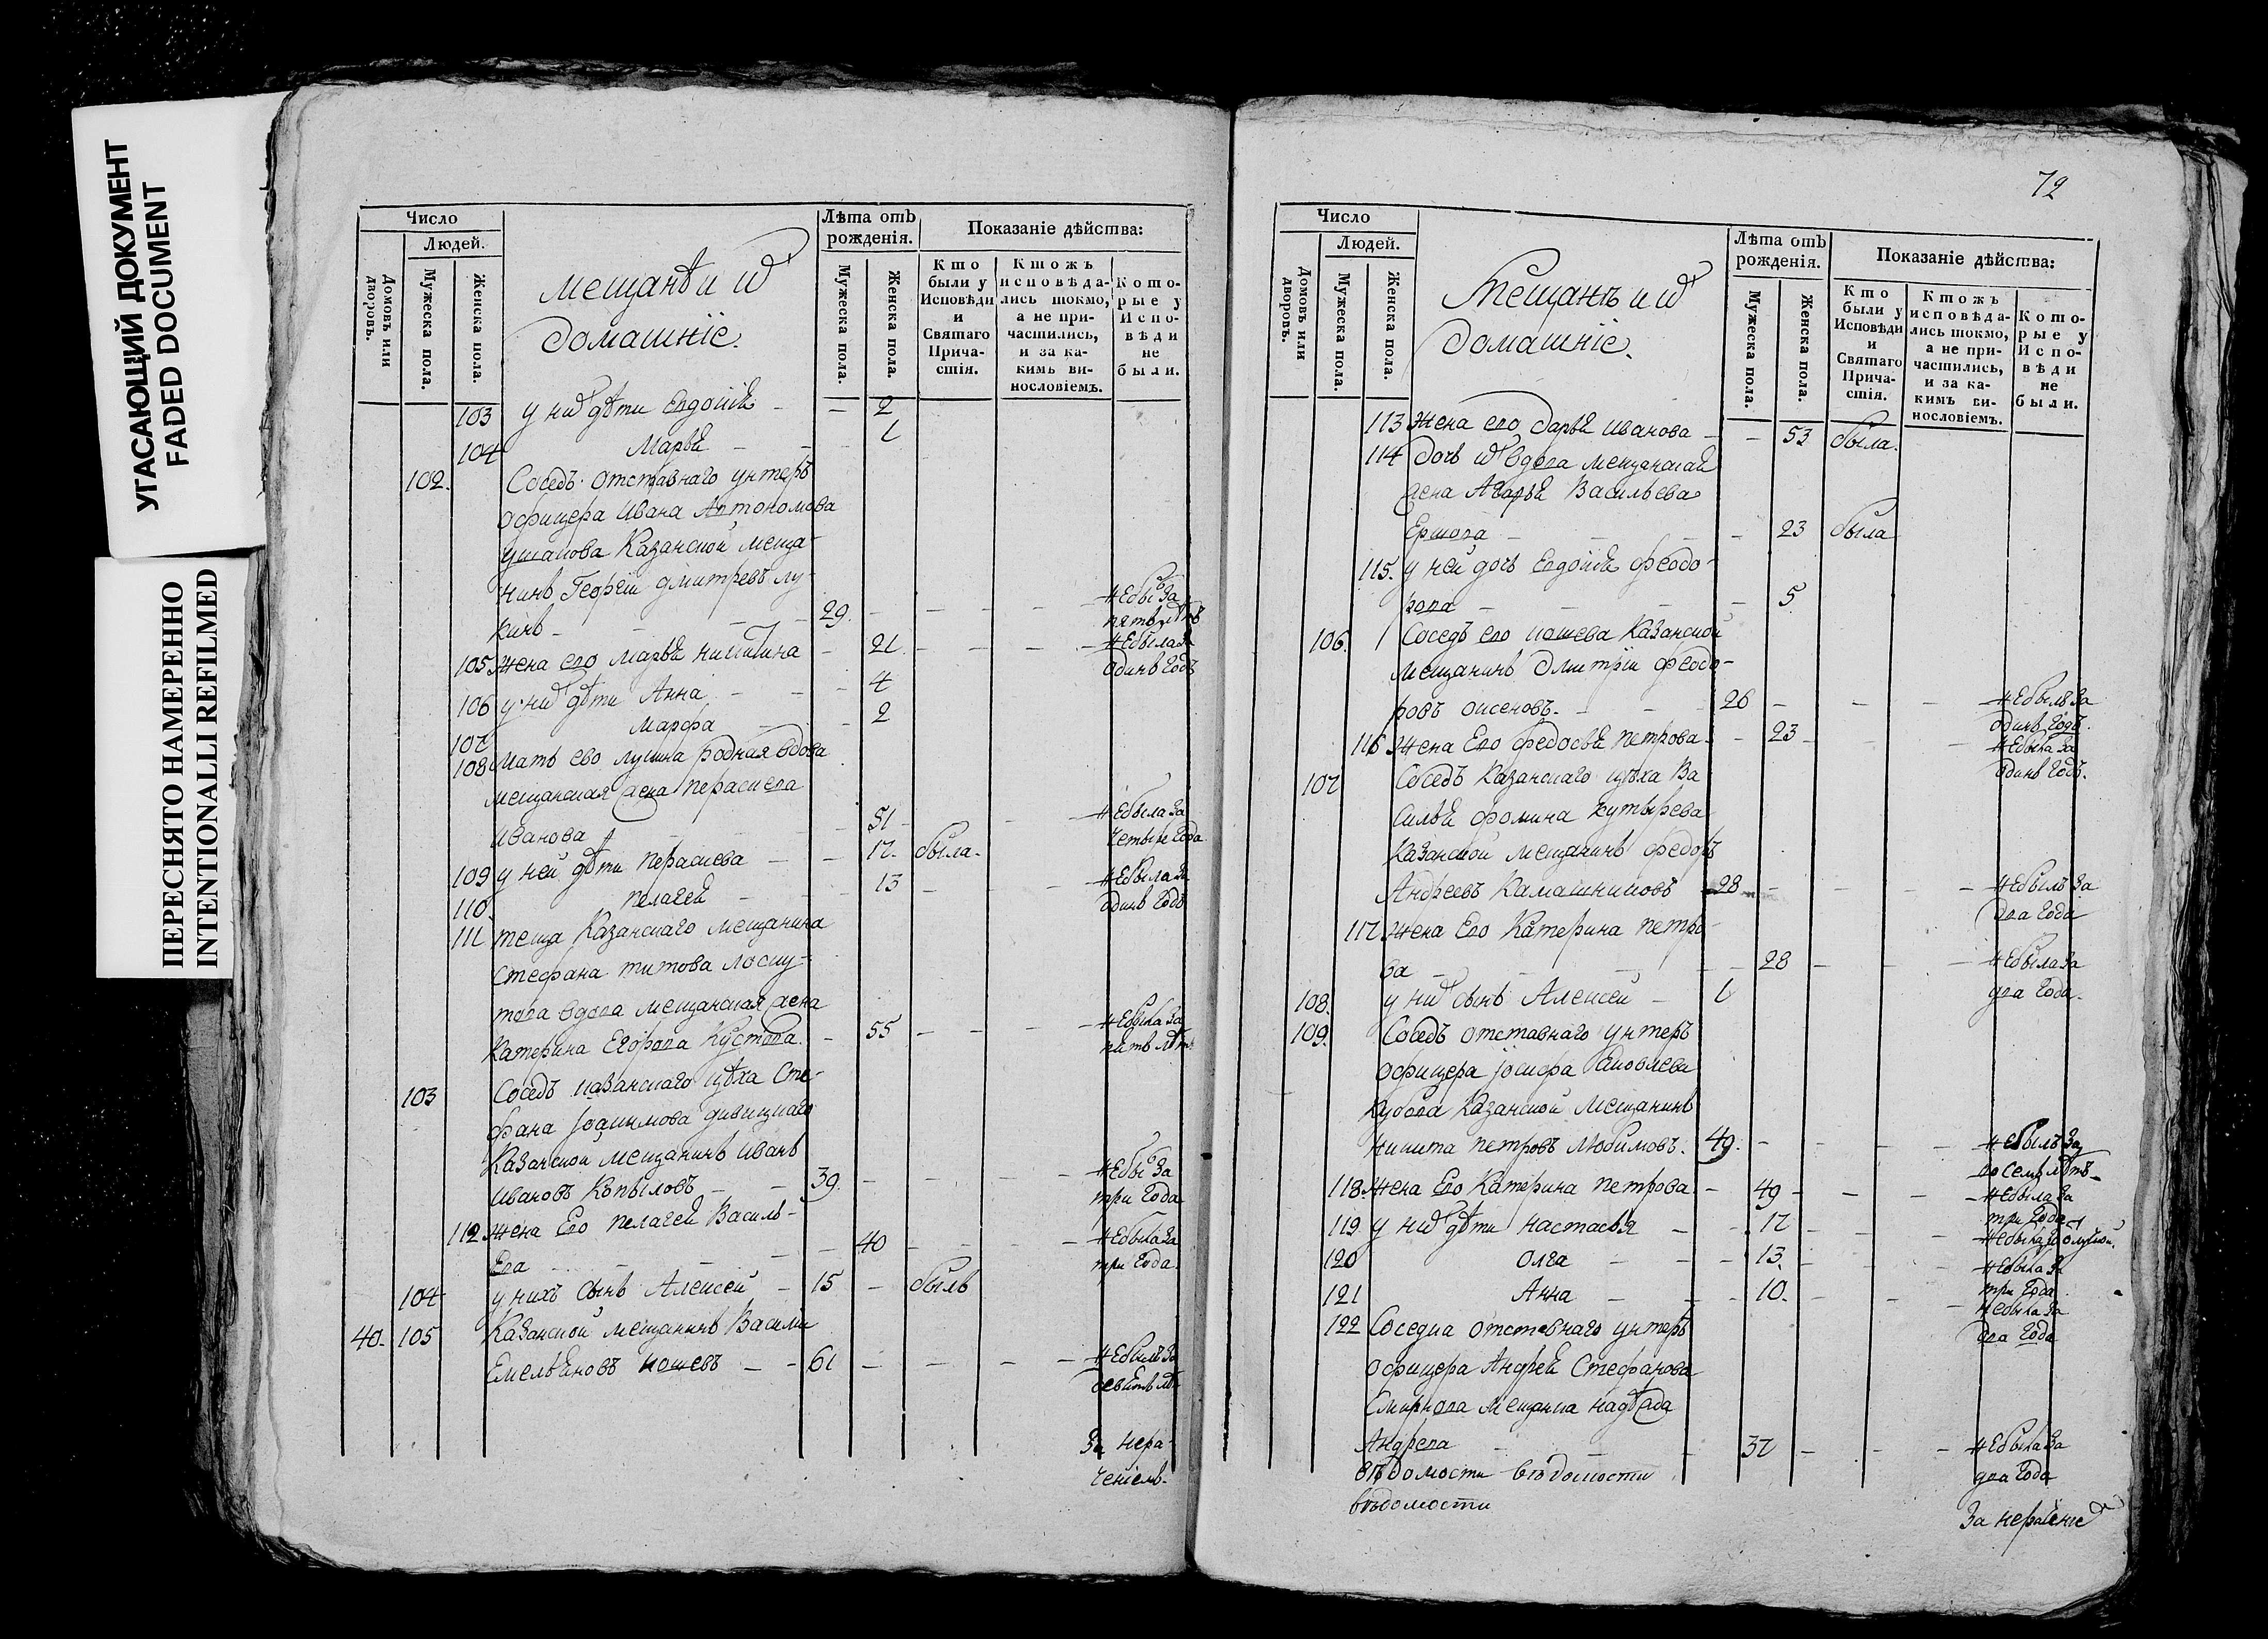 УГАСАЮЩИЙ ДОКУМЕНТ
FADED DOCUMENT
ПЕРЕСНЯТО НАМЕРЕННО
INTENTIONALLI REFILMED
Число
Людей.
Домовъ или дворовъ.
Мужеска пола.
Женска пола.
мещанѣ и ихъ
домашніе.
Лѣта отъ
рожденія.
Мужеска пола.
Женска пола.
Показаніе дѣйства:
Кто
были у
Исповѣди
и
Святаго
Прича-
стія.
Ктожъ
исповѣда-
лись токмо,
а не при-
частились,
и за ка-
кимъ ви-
нословіемъ.
Кото-
рые у
Испо-
вѣди
не
были.
103 у них дѣти Евдокія - - 2
104 Марья - - 1
102. Соседъ отставнаго унтеръ
офицера Ивана Артономова
Казанской меща-
нинъ Георгій Дмитревъ лу-
кинъ - 29. - - - небы За
пять лѣтъ
105 жена его Марья никитина - 21. - - - небыла За
одинъ годъ
106 у них дѣти Анна - - 4
107 Марфа - - 2
108 Мать ево лукина родная вдова
мещанская жена Параскева
Иванова - 51 - - небыла За
четыре года
109 у ней дѣти Параскева - - 17. была.
110. пелагея - - 13 - - небыла За
одинъ годъ
111 теща Казанскаго мещанина
Стефана титова лоску-
това вдова мещанская жена
Катерина Егорова Кустова. - 55 - - - небыла За
пять лѣтъ
103 Соседъ казанскаго цѣха Сте-
фана Іоакимова
Казанской мещанинъ Иванъ
Ивановъ Копыловъ - - 39. - - - небы За
три года
112 жена Его пелагея Василь-
ева - - 40 - - - небыла За
три года.
104 у нихъ сынъ Алексей - 15 - былъ
40. 105 Казанской мещанинъ Василій
Емельяновъ кошевъ - - 61 - - - - небылъ За
девять лѣ
За нера-
ченіемъ.
72
Число
Людей.
Домовъ или дворовъ.
Мужеска пола.
Женска пола.
Мещанѣ и ихъ
домашніе.
Лѣта отъ
рожденія.
Мужеска пола.
Женска пола.
Показаніе дѣйства:
Кто
были у
Исповѣди
и
Святаго
Прича-
стія.
Ктожъ
исповѣда-
лись токмо,
а не при-
частились,
и за ка-
кимъ ви-
нословіемъ.
Кото-
рые у
Испо-
вѣди
не
были.
113 Жена его дарья Иванова - - 53 была.
114 дочь их вдова мещанская
жена Агафья Васильева
Ершова - - - - 23 была
115. у ней дочь Евдокія феодо-
рова - - - 5
106. Соседъ его кошева Казанской
мещанинъ Дмитрій феодо-
ровъ оксеновъ. - - 26 - - - небылъ За
одинъ годъ.
116 Жена Его федосья петрова. - 23 - небыла За
одинъ годъ.
107 Соседъ Казанскаго цѣха Ва
силья фомина Кутырева
Казанской мещанинъ федоръ
Андреевъ Камашниковъ 28 - - - - небылъ За
два года
117 жена Его Катерина петро-
ва - - - - 28 - - - небыла За
два года.
108. у них сынъ Алексей - 1
109. Соседъ отставнаго унтеръ
офицера Іосифа Яковлева
Кубова Казанской мещанинъ
Никита петровъ Любимовъ. 49. - - - небылъ За
семь лѣтъ
118. жена Его Катерина петрова. - 49 - - - небыла За
три года
119. у них дѣти настасья - - 17 - - -
120 олга - - - 13. - - небыла За
три года
121 Анна - - - 10. - - небыла За
два года
122 Соседка отставнаго унтеръ
офицера Андрея Стефанова
Смирнова мещанка надѣжда
Андрева - - - 37 - - - небыла За
два года
вѣдомости вѣдомости
вѣдомости
За нераченіе